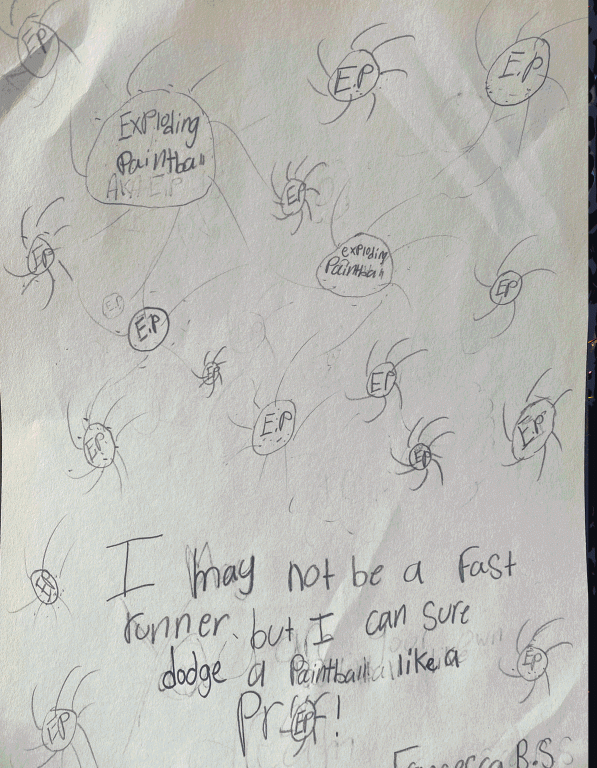 EP
E.P
E.P
Exploding
Paintball
AKA E.P
EP
exploding
Paintball
EP
EP
EP
E.P
EP
EP
E.P
EP
EP
E.P
EP
I may not be a fast
runner but I can sure
dodge a Paintball like a
Pr
EP
!
EP
EP
Francesca B.S